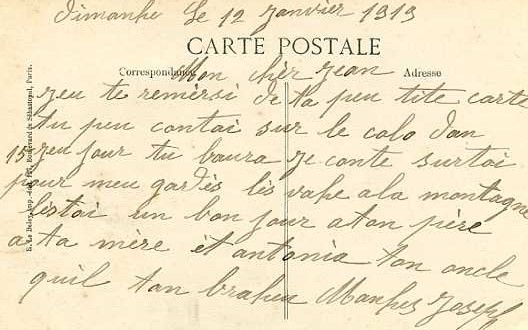 Dimanhe le 12 Janvier 1913
CARTE POSTALE
Correspondance
Adresse
Mon chèr Jean
jeu te remèrsi de ta peu tite carte
tu peu contai sur le colo dan
15 jeu jour tu baura je conte surtoi
pour meu gardès lès vahe a la montagne
un bon jour a ton père
a ta mère èt antonia ton oncle
quil tan braheu Manhes Joseph
E. Le Deley, imp.-éd., Boulevard de Sébastopol, Paris.